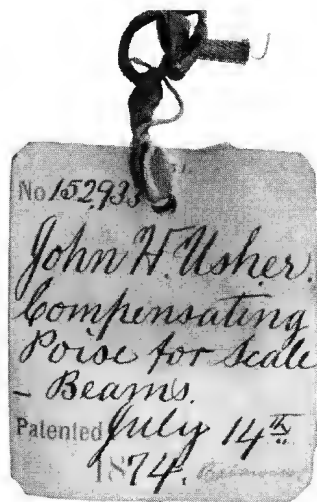 No 152,933
John H. Usher.
Compensating
Poise for Scale
- Beams.
Patented July 14th
1874.